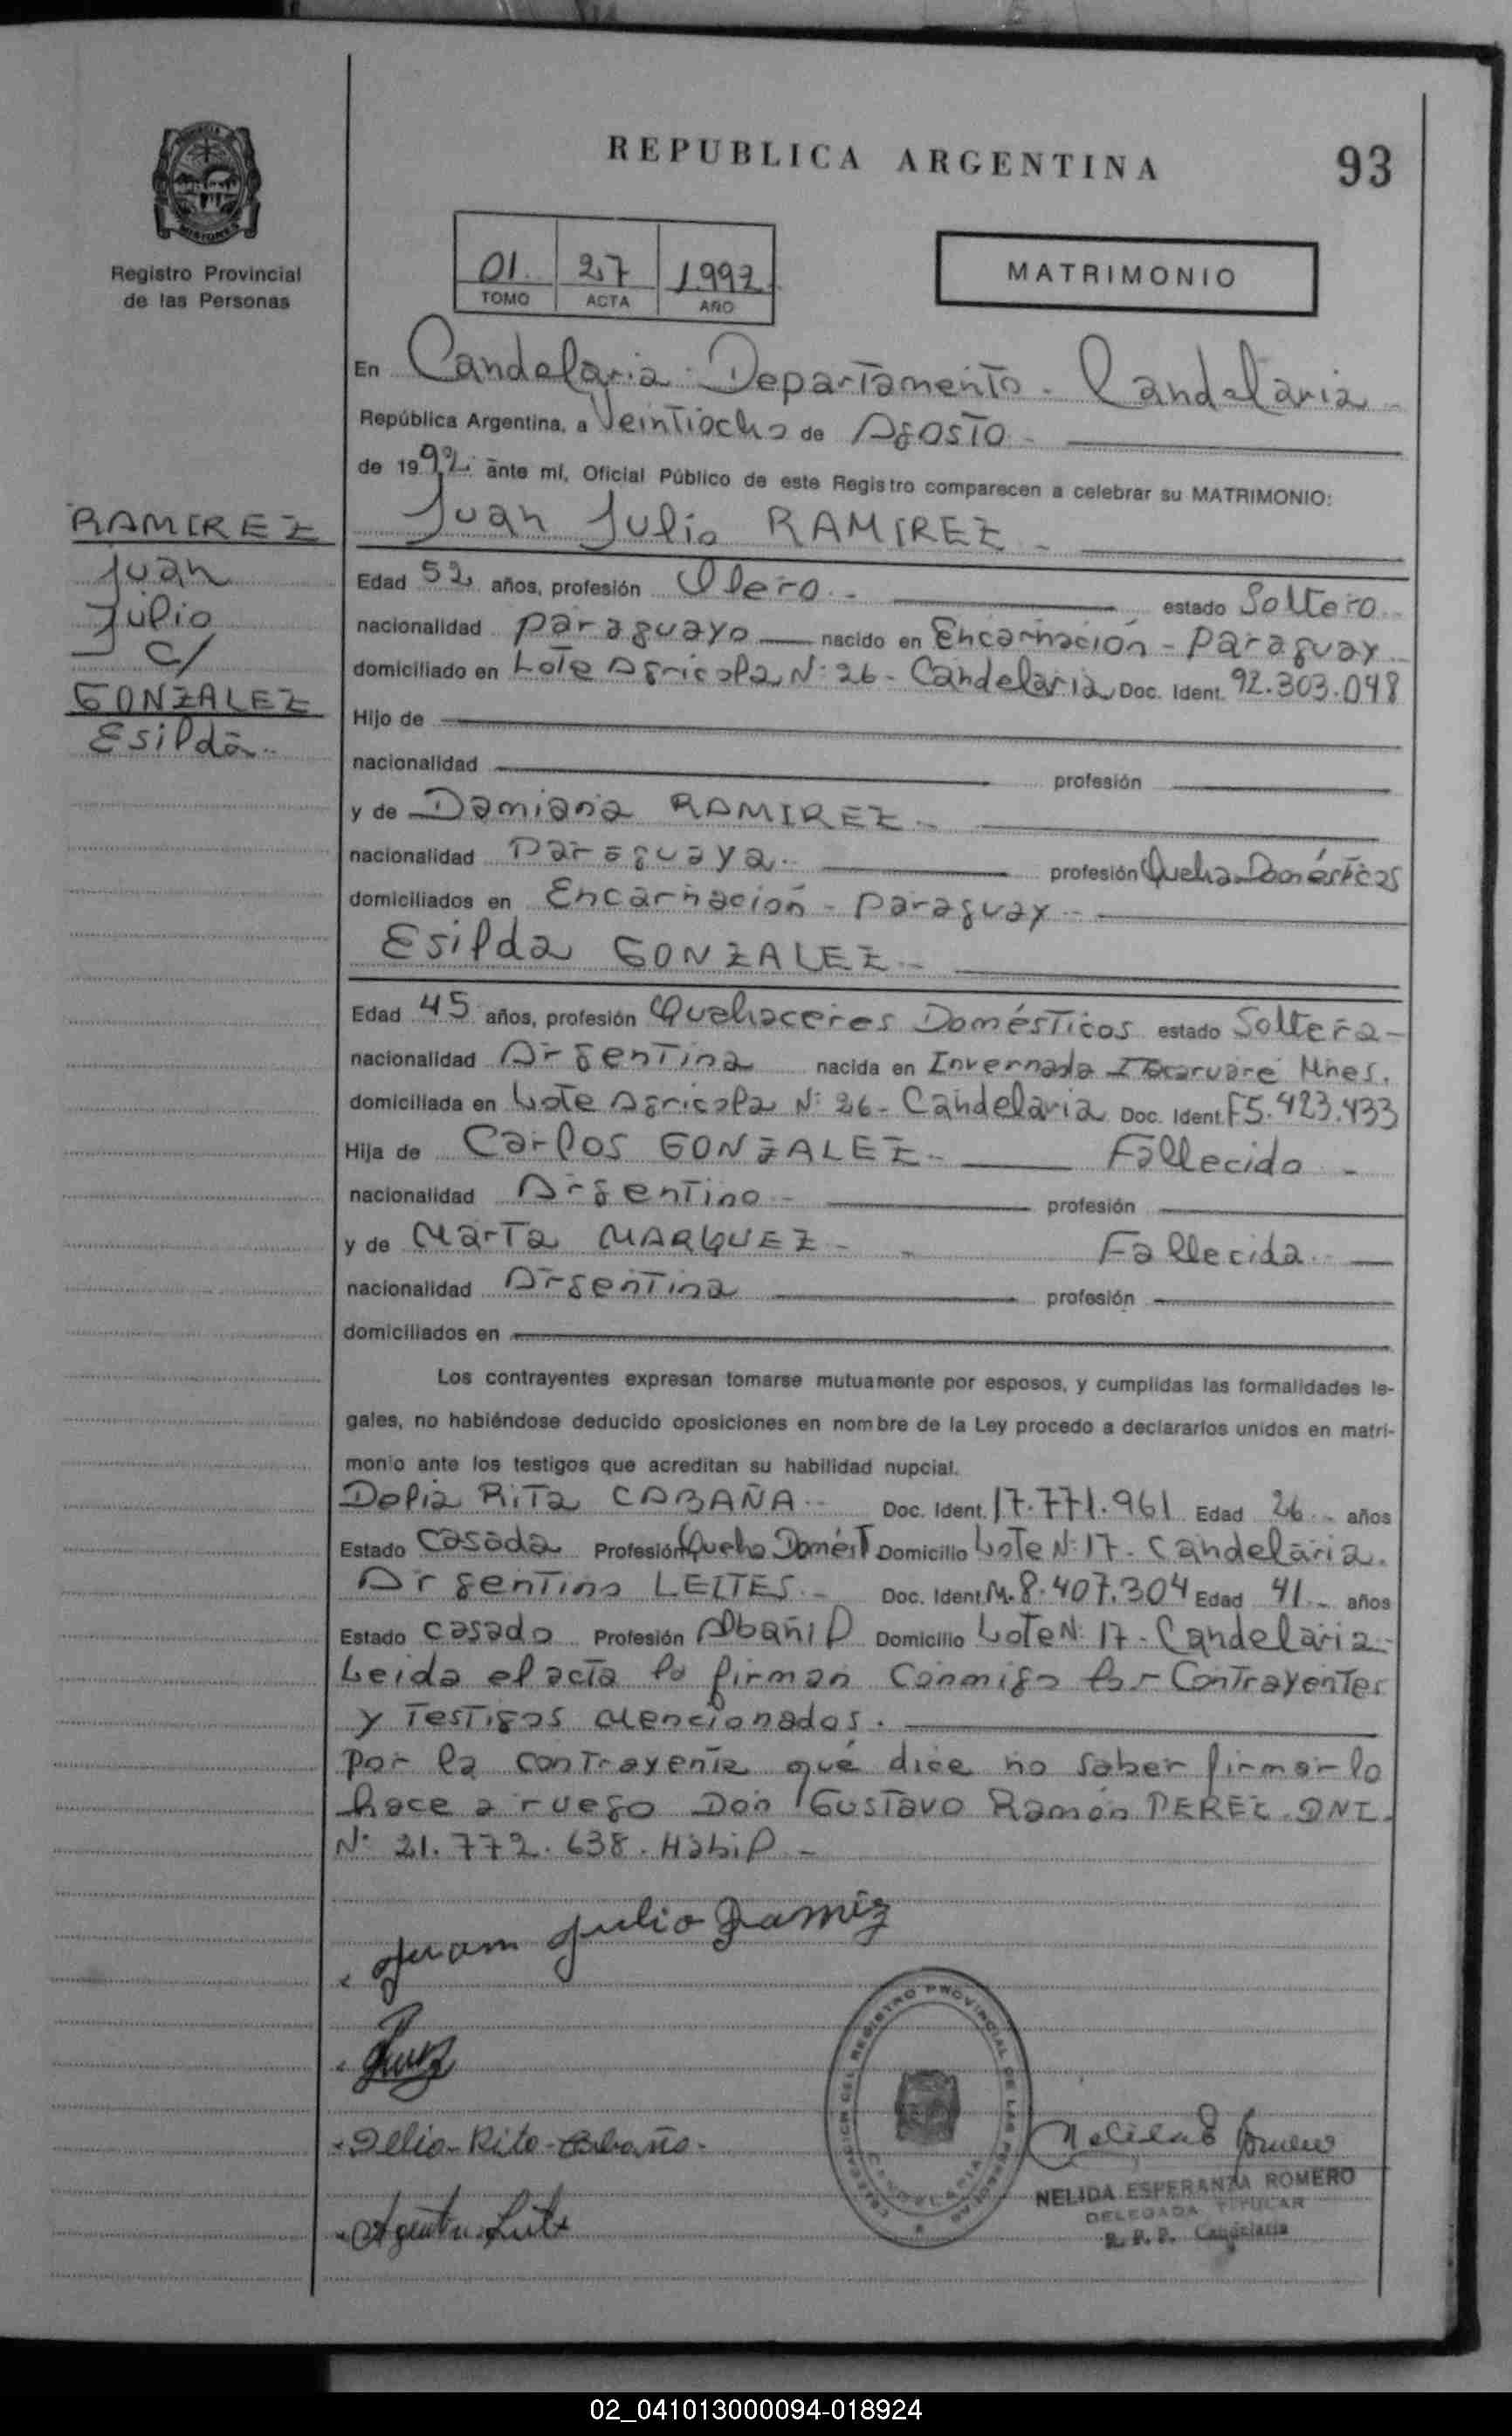 REPUBLICA ARGENTINA
93
MISIONES
Registro Provincial
de las Personas
01. 27 1.992.
TOMO ACTA AÑO
MATRIMONIO
En Candelaria - Departamento - Candelaria -
República Argentina, a Veintiocho de Agosto -
de 1992 ante mí, Oficial Público de este Registro comparecen a celebrar su MATRIMONIO:
Juan Julio RAMIREZ -
RAMIREZ
Juan
Julio
C/
GONZALEZ
Esilda -
Edad 52 años, profesión Olero - estado Soltero
nacionalidad paraguayo nacido en Encarnación - Paraguay
domiciliado en Lote Agricola N: 26 - Candelaria Doc. Ident. 92.303.048
Hijo de
nacionalidad profesión
y de Damiana RAMIREZ -
nacionalidad Paraguaya - profesión Queha-Domésticos
domiciliados en Encarnación - Paraguay -
Esilda GONZALEZ -
Edad 45 años, profesión Quehaceres Domésticos estado Soltera -
nacionalidad Argentina nacida en Invernada Itacaruaré Mnes.
domiciliada en Lote Agricola N: 26 - Candelaria Doc. Ident. F5.423.433
Hija de Carlos GONZALEZ - Fallecido -
nacionalidad Argentino - profesión
y de Marta MARQUEZ - Fallecida -
nacionalidad Argentina profesión
domiciliados en
Los contrayentes expresan tomarse mutuamente por esposos, y cumplidas las formalidades le-
gales, no habiéndose deducido oposiciones en nombre de la Ley procedo a declararlos unidos en matri-
monio ante los testigos que acreditan su habilidad nupcial.
Delia Rita CABAÑA - Doc. Ident. 17.771.961 Edad 26 - años
Estado Casada Profesión Queha Domést Domicilio Lote N: 17 - Candelaria.
Argentino LEITES - Doc. Ident. M. 8.407.304 Edad 41 - años
Estado casado Profesión Albañil Domicilio Lote N: 17 - Candelaria -
Leida el acta la firman conmigo los Contrayentes
y Testigos mencionados.
Por la contrayente que dice no saber firmar lo
hace a ruego Don Gustavo Ramón PEREZ - DNI.
N: 21.772.638. Habil -
Juan Julio Ramirez
Delia Rita Cabaña
DELEGACION DEL REGISTRO PROVINCIAL DE LAS PERSONAS
CANDELARIA
NELIDA ESPERANZA ROMERO
DELEGADA TITULAR
R. P. P. Candelaria
02_041013000094-018924